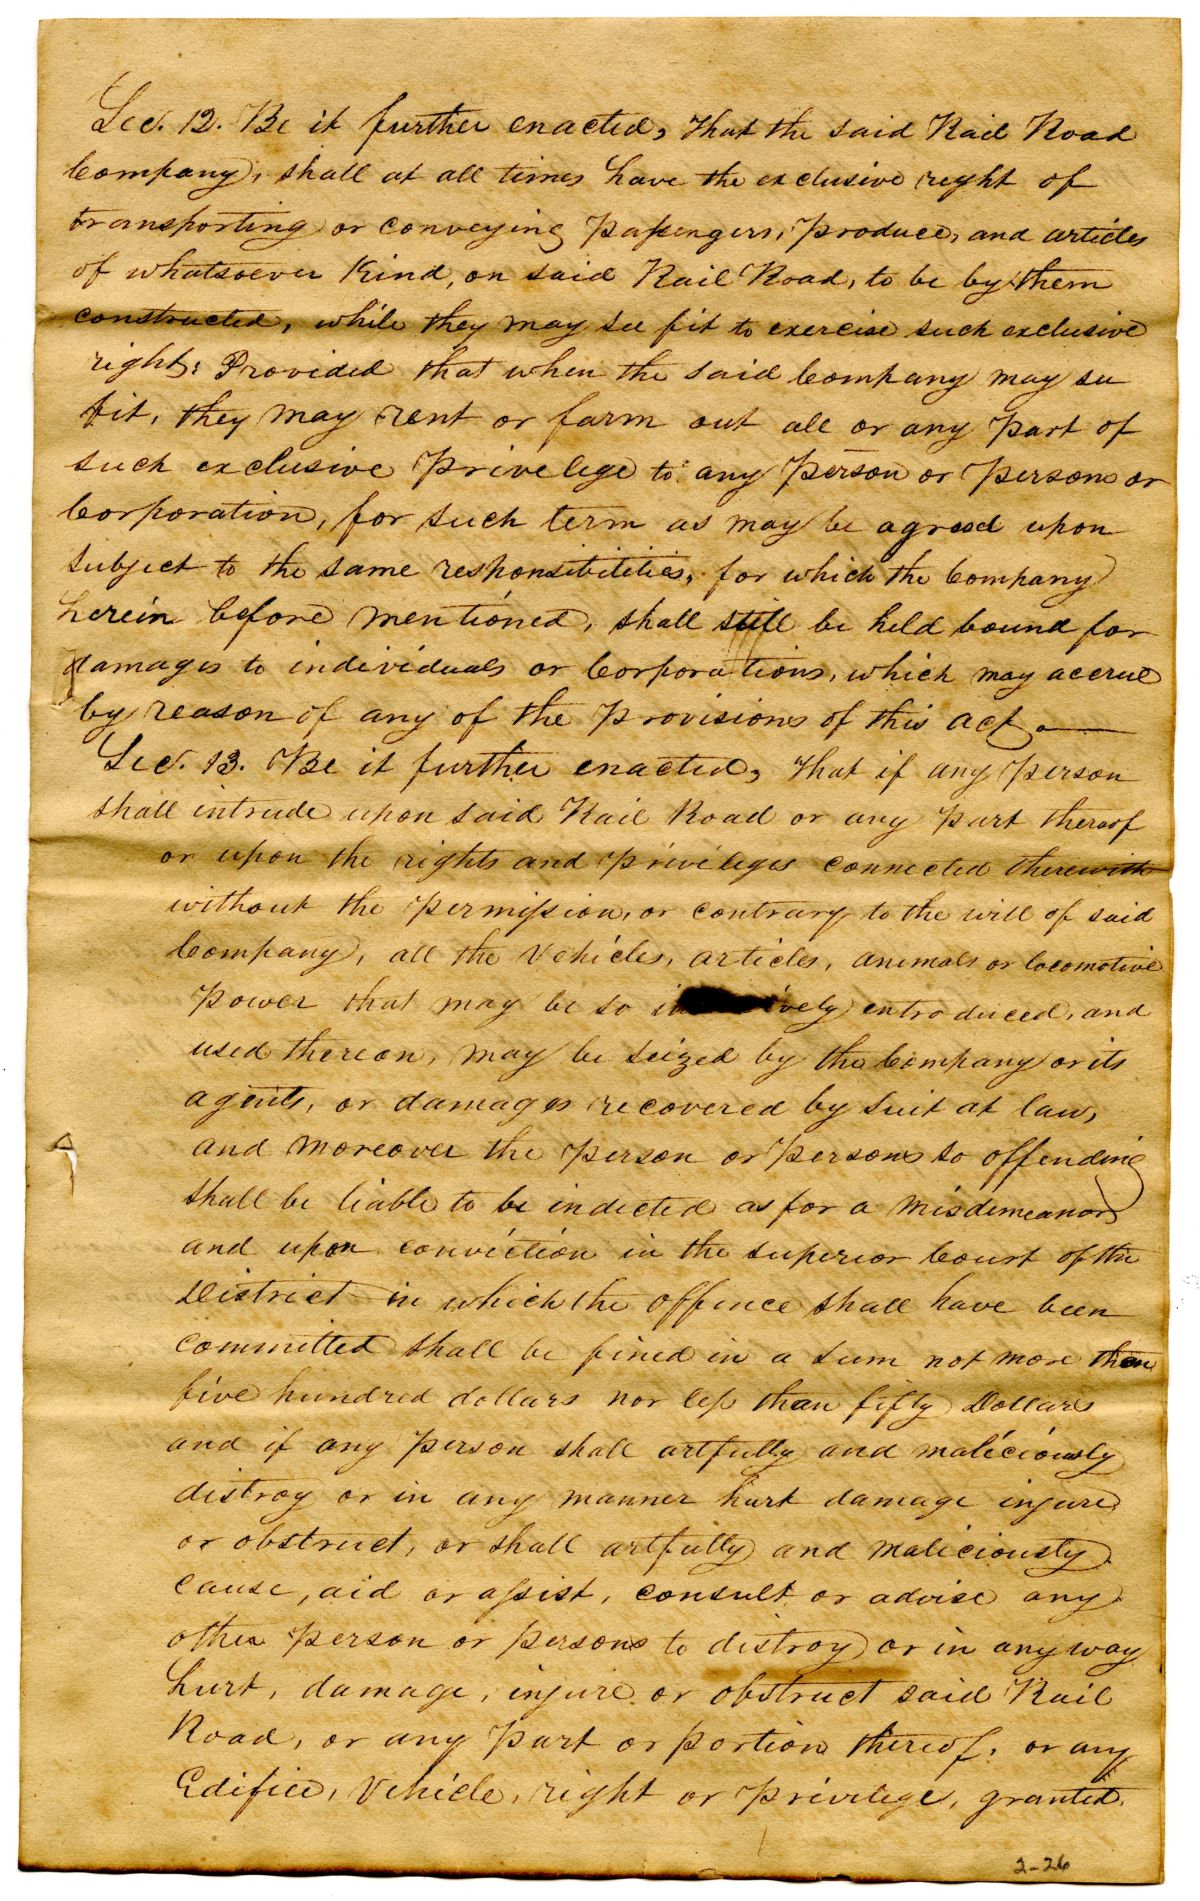 Sec. 12. Be it further enacted, that the said Rail Road
Company, shall at all times have the exclusive reght of
transporting or conveying Passengers, produce, and articles
of whatsoever Kind, on said Rail Road, to be by them
constructed, while they may see fit to exercise such exclusive
right: Provided that when the said Company may see
fit, they may rent or farm out all or any part of
such exclusive privelege to any person or persons or
Corporation, for such term as may be agreed upon
subject to the same responsibilities, for which the Company
herein before mentioned, shall still be held bound for
damages to individuals or Corporations, which may accrue
by reason of any of the provisions of this act.
Sec. 13. Be it further enacted, that if any person
shall intrude upon said Rail Road or any part thereof
or upon the rights and priveleges connected therewith
without the permission, or contrary to the will of said
Company, all the Vehicles, articles, animals or locomotive
power that may be so vely entroduced, and
used thereon, may be seized by the Company or its
agents, or damages recovered by suit at law,
and moreover the person or persons so offending
shall be liable to be indected as for a misdemeanor
and upon conviction in the superior Court of the
District in which the offence shall have been
committed shall be fined in a sum not more than
five hundred dollars nor less than fifty Dollars
and if any person shall artfully and maliciously
distroy or in any manner hurt damage injure
or obstruct, or shall artfully and maliciously
cause, aid or assist, consult or advise any
other person or persons to distroy or in any way
hurt, damage, injure or obstruct said Rail
Road, or any part or portion thereof, or any
Edifice, Vehicle, right or privilege, granted
2-26